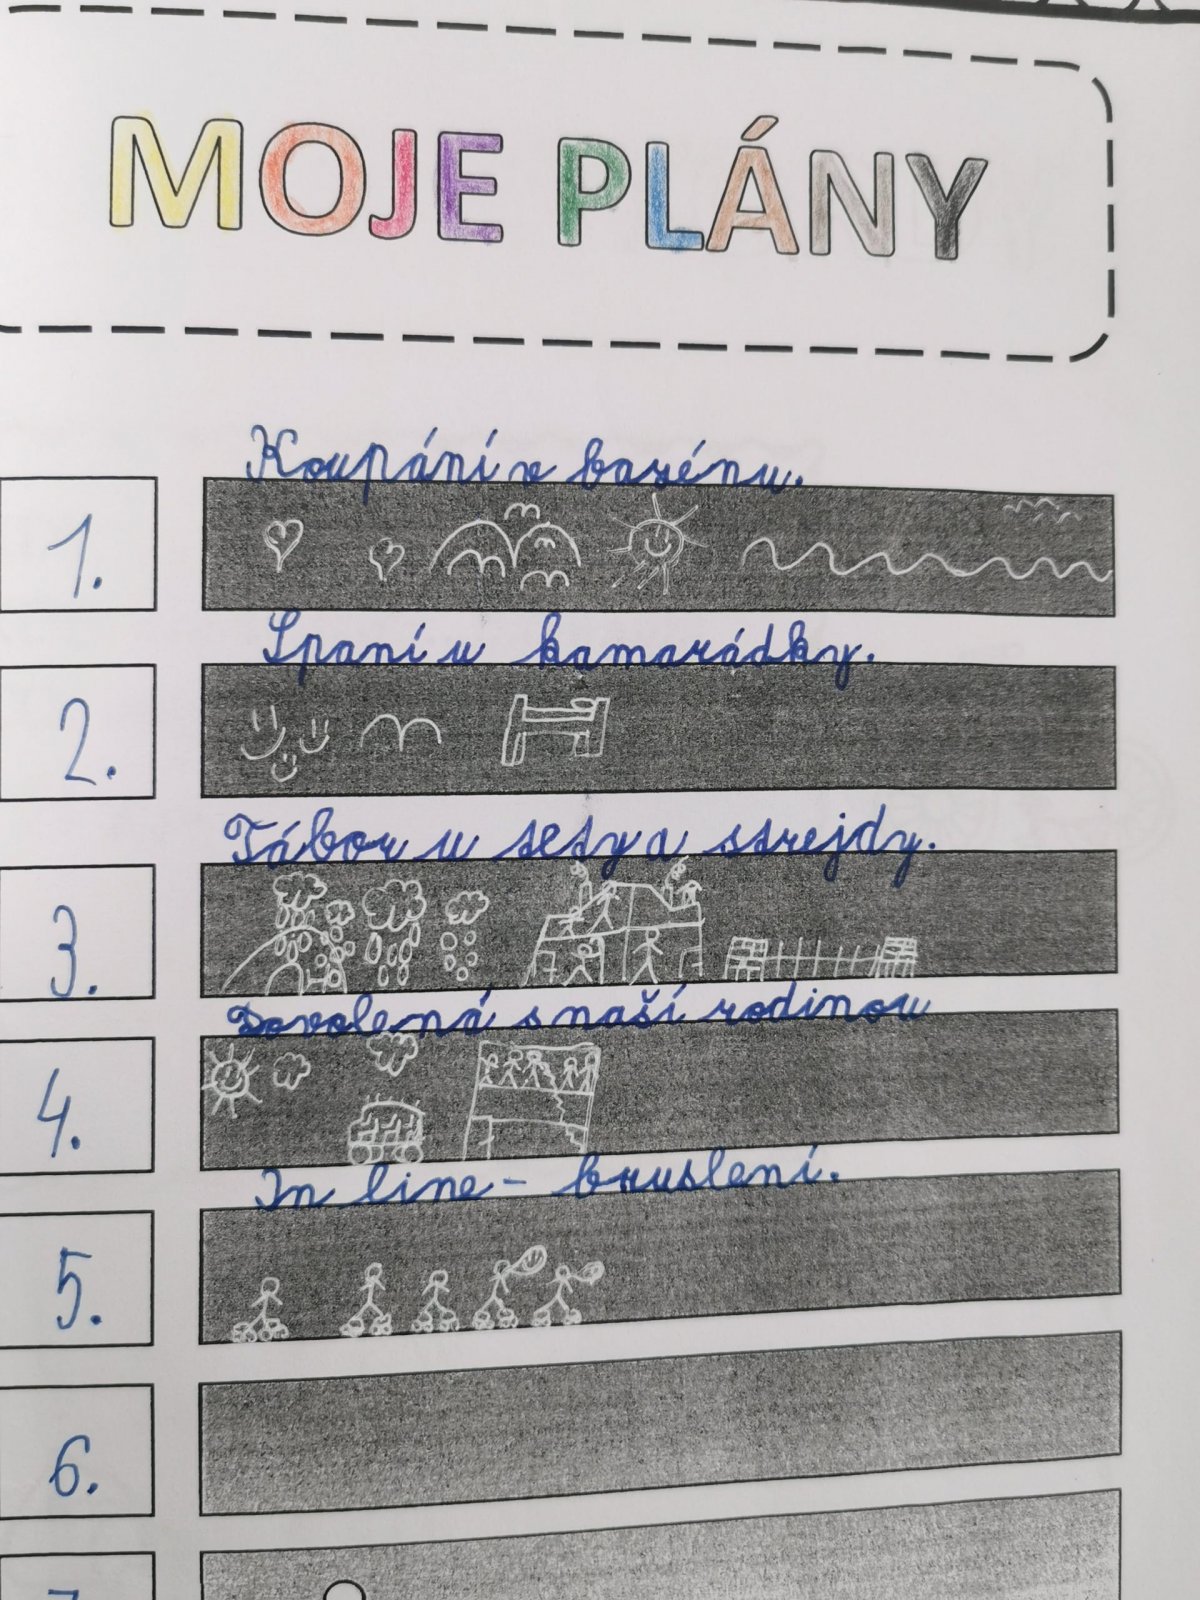 MOJE PLÁNY
Koupání v bazénu.
1.
Spaní u kamarádky.
2.
Tábor u tety a strejdy.
3.
Dovolená s naší rodinou
4.
In line - bruslení.
5.
6.